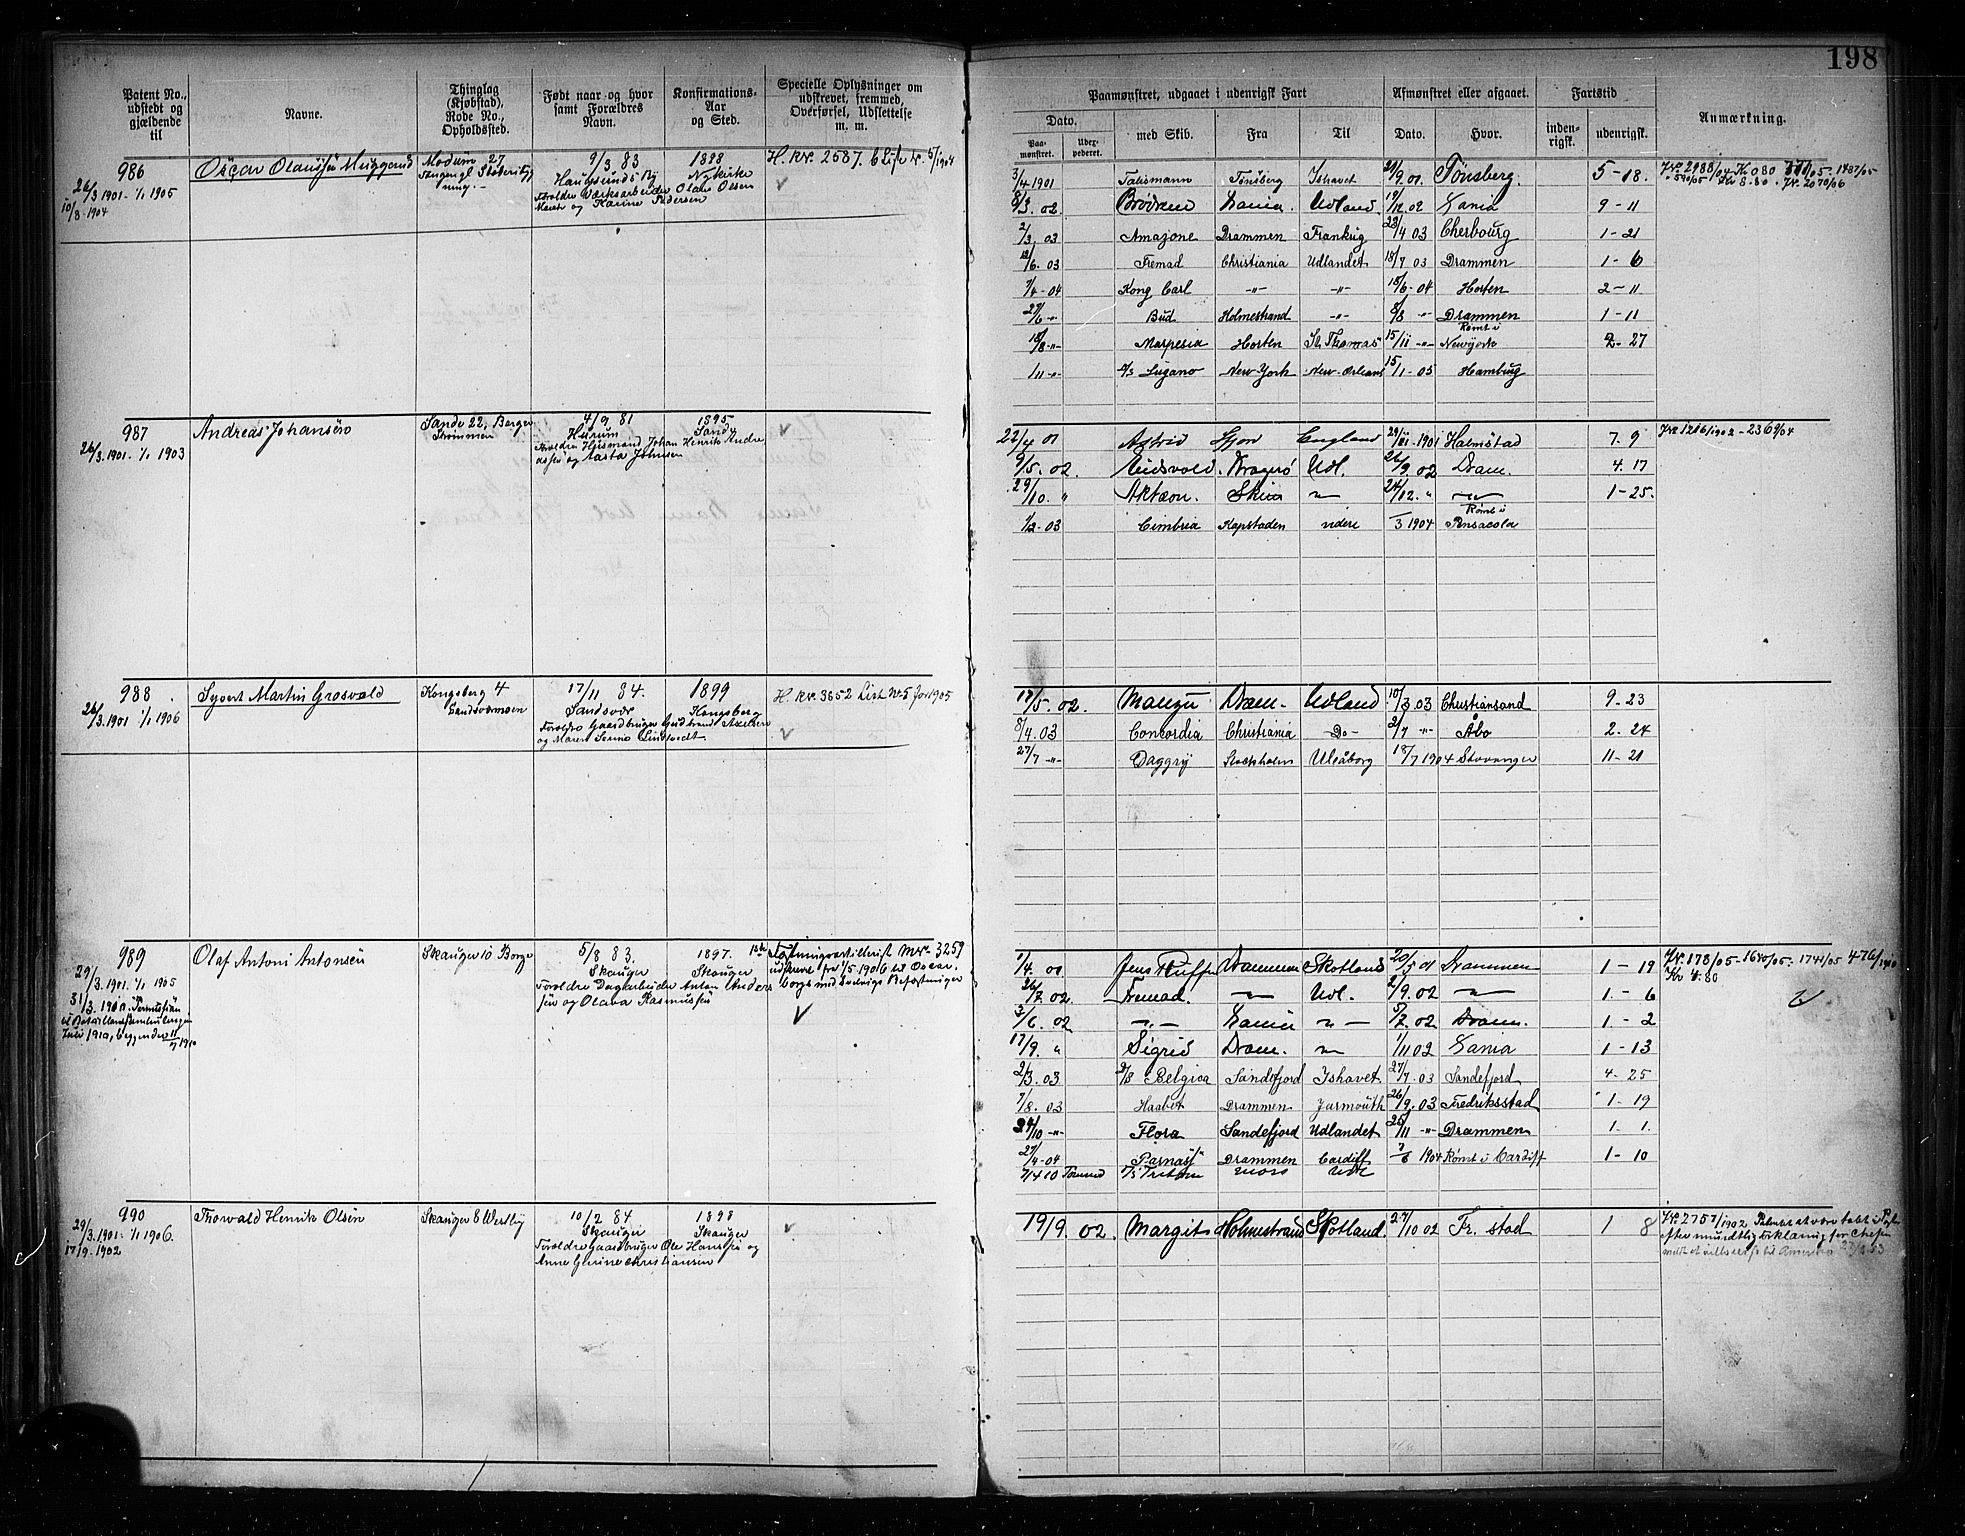 198
Patent No., udstedt og gjældende til
Navne.
Thinglag (Kjøbstad), Rode No., Opholdssted.
Født naar og hvor samt Forældres Navn.
Konfirmations-Aar og Sted.
Specielle Oplysninger om udskrevet, fremmed, Overførsel, Udslettelse m. m.
Paamønstret, udgaaet i udenrigsk Fart
Afmønstret eller afgaaet.
Fartstid
Anmærkning.
Dato.
Paamønstret.
Udexpederet.
med Skib.
Fra
Til
Dato.
Hvor.
indenrigsk.
udenrigsk.
986
26/3 1901. 1/1 1905
10/8 1904
Oscar Olaussen Muggerud
Modum 27
9/3 83
Haugsunds By
Forældre Værksarbeider Olaus Olsen
Maren og Karine Pedersen
1898
Nykirke
H. Nr. 2587. 6 Liste Nr. 5/1904
3/4 1901 Talismann Tønsberg Ishavet 21/9 01. Tønsberg. 5-18.
8/3. 02. Brødrene Xania. Udland. 19/12 02 Xania 9-11
2/3. 03 Amazone Drammen Frankrig 23/4 03 Cherbourg 1-21
12/6. 03 Fremad Christiania Udlandet 18/7 03 Drammen 1-6
7/4-04 Kong Carl -"- -"- 18/6-04 Horten 2-11
27/6 -"- Bud Holmestrand -"- 8/8 -"- Drammen 1-11
18/8 -"- Marpesia Horten St. Thomas 15/11 -"- Rømt i Newyork 2-27
1/11 -"- S/S Lugano New York New-Orleans 15/1-05 Hamburg
987
26/3. 1901. 1/1 1903
Andreas Johansen
Sande 22, Berger
Strømmen
4/9 81
Hurum
Forældre Husmand Johan Henrik Andreassen og Karta Johnsen
1895
Sande
22/4 01 Astrid Sjon England 29/11 1901 Halmstad 7. 9
9/5. 02. Eidsvold. Dragerö Udl. 26/9. 02 Dram. 4. 17
29/10. " Aktæon. Skien 24/12. " 1-25.
1/2-03 Cimbria Kapstaden videre /3 1904 Rømt i Pensacola
Jr. 1216/1902 - 2369/04
988
26/3. 1901 1/1 1906
Syvert Martin Grosvold
Kongsberg 4
Sandsværmoen
17/11 84.
Sandsvær
Forældre Gaardbruger Gudbrand Axelsen
og Maren Sørine Lindsvedt
1899
Kongsberg
H. Nr. 3652 List Nr. 5 for 1905
17/5. 02. Dram. Udland 10/3 03 Christiansand 9-23
8/4. 03 Concordia Christiania Do 2/7 -"- Åbo 2. 24
27/7 -"- Daggry Stockholm Uleåborg 18/7 1904 Stavanger 11-21
989
29/3. 1901. 1/1 1905
Olaf Antoni Antonsen
Skauger 10 Borge
5/8 83.
Skauger
Forældre Dagarbeider Anton Andersen og Olava Rasmussen
1897.
Skauger
1/4. 01 Jens Ruff Drammen Skotland 20/5 01 Drammen 1-19
26/7. 02 Fremad. Udl. 2/9. 02 1. - 6
3/6. 02 -"- Xania 5/7. 02 Dram. 1. - 2
17/9. " Sigrid Dram. 1/11 02 Xania 1-13
2/3. 03 S/S Belgica Sandefjord Ishavet 27/7. 03 Sandefjord 4-25
7/8. 03 Haabet Drammen Jarmouth 26/9. 03 Fredriksstad 1-19
24/10 -"- Flora Sandefjord Udlandet 25/11 -"- Drammen 1. 1.
27/4-04 Parnass Drammen Cardiff 1904 Rømt i Cardiff 1-10
7/4 10 S/S Triton Moss Udl
990
29/3. 1901. 1/1 1906.
17/9. 1902
Thorvald Henrik Olsen
Skauger 8 Westby
10/2 84
Skauger
Forældre Gaardbruger Ole Hansen og
Anne Gurine Christiansen
1898
Skauger
19/9. 02. Margit Holmestrand Skotland. 27/10 02 Fr. stad 1 8
Jr. 2757/1902
efter mundtlig Erklæring